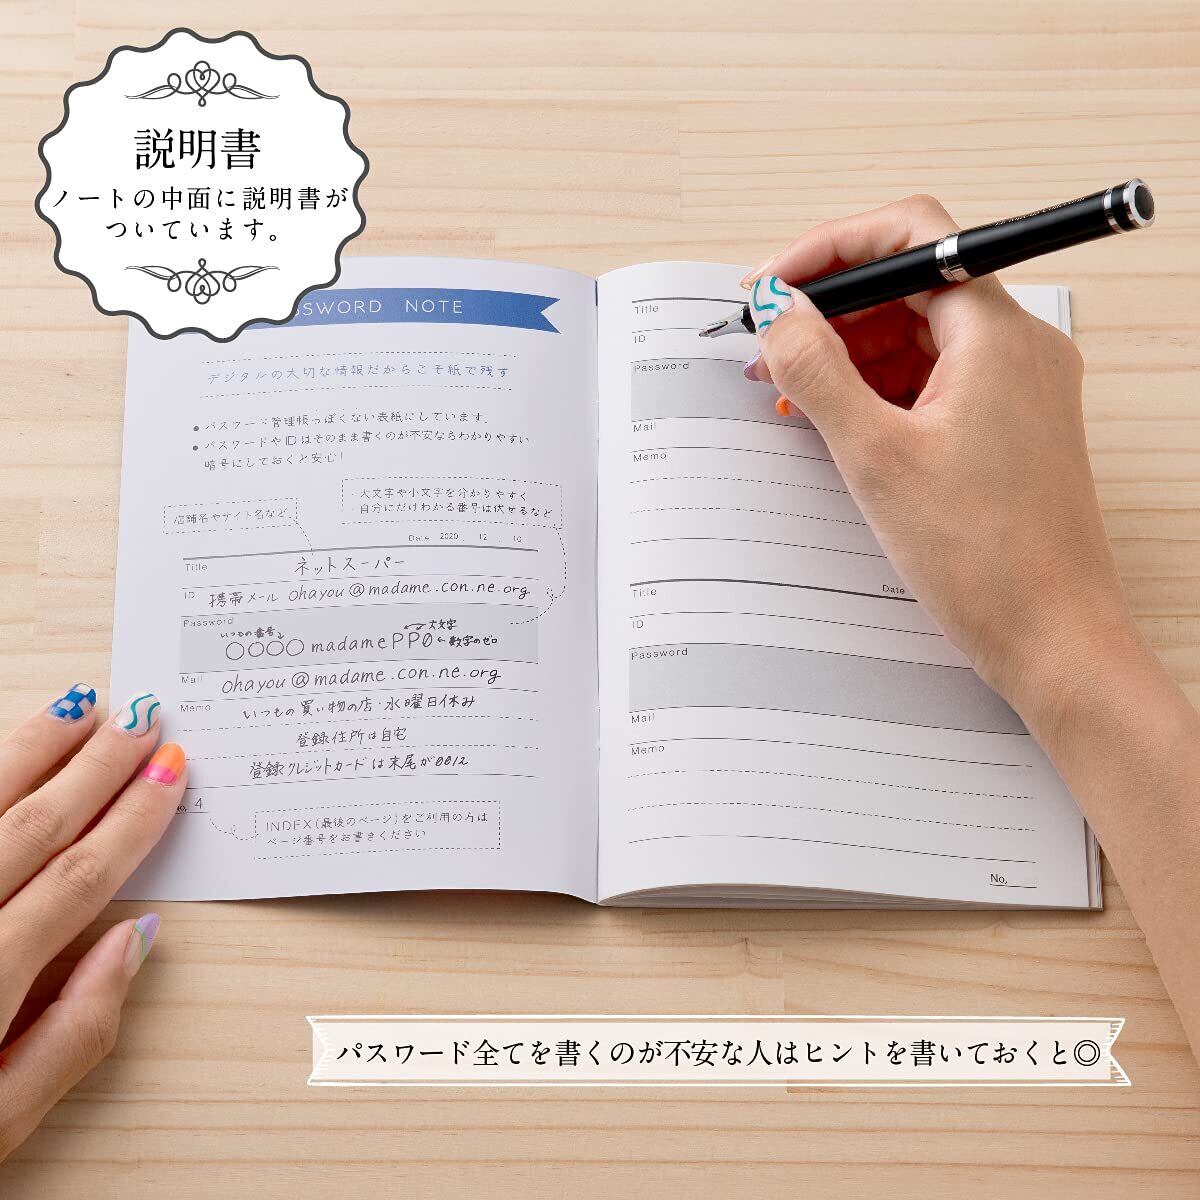 説明書
ノートの中面に説明書が
ついています。
SSWORD NOTE
デジタルの大切な情報だからこそ紙で残す
● パスワード管理帳っぽくない表紙にしています。
● パスワードやIDはそのまま書くのが不安ならわかりやすい
暗号にしておくと安心!
大文字や小文字を分かりやすく
自分にだけわかる番号は伏せるなど
店舗名やサイト名など
Date 2020 . 12 . 10
Title ネットスーパー
ID 携帯メール ohayou@madame.con.ne.org
Password
いつもの番号 大文字
○○○○ madamePP0 ←数字のゼロ
Mail ohayou@madame.con.ne.org
Memo いつもの買い物の店・水曜日休み
登録住所は自宅
登録クレジットカードは末尾が0012
No, 4
INDEX(最後のページ)をご利用の方は
ページ番号をお書きください
Title
ID
Password
Mail
Memo
Title Date
ID
Password
Mail
Memo
No,
パスワード全てを書くのが不安な人はヒントを書いておくと◎